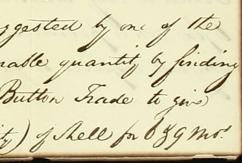 ggested by one of the
rable quantity by finding
Button Trade to give
ity) of Shell for 6 & 9 Mos.